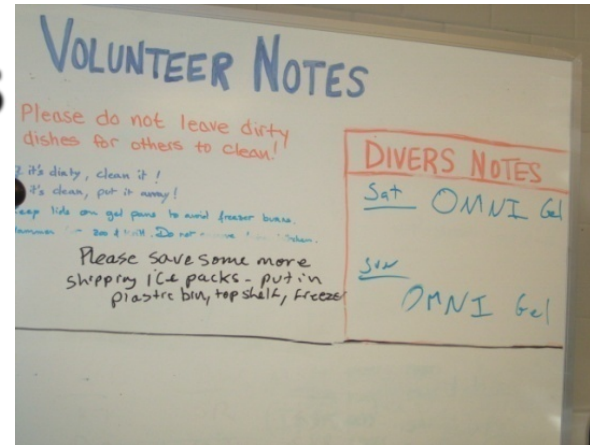 VOLUNTEER NOTES
Please do not leave dirty
dishes for others to clean!
it's dirty, clean it!
it's clean, put it away!
lids on gel pans to avoid freezer burn.
Do not
Please save some more
shipping ice packs - put in
plastic bin, top shelf, freezer
DIVERS NOTES
Sat OMNI Gel
Sun
OMNI Gel